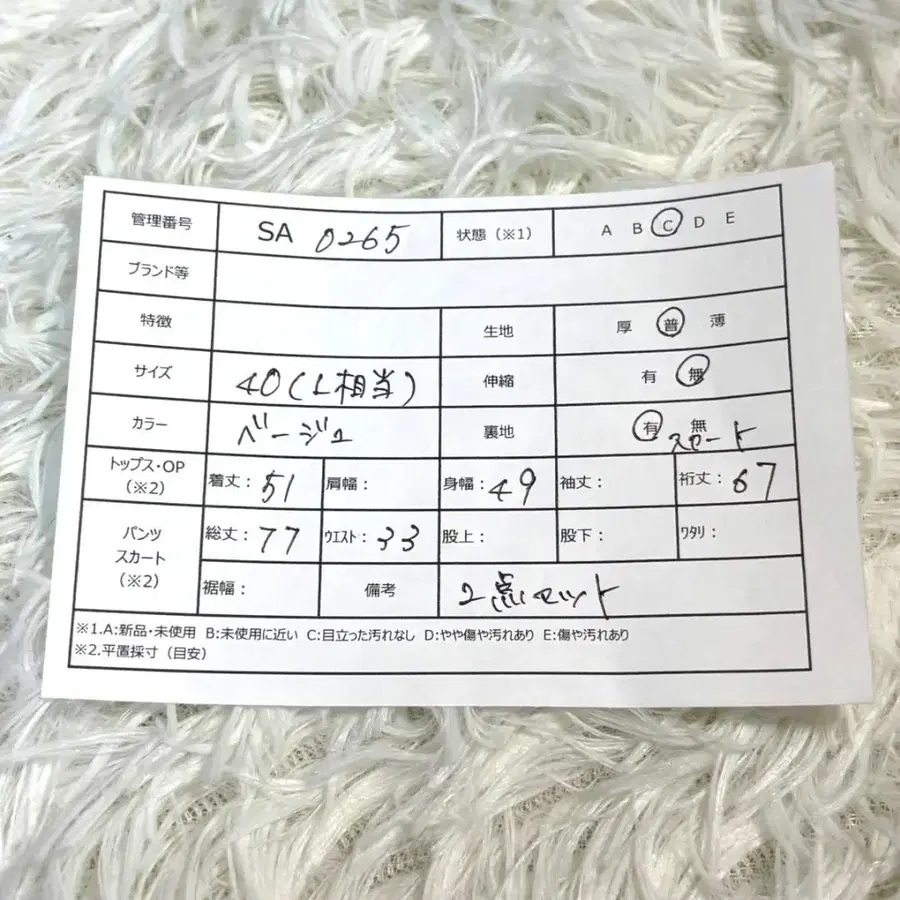 管理番号 SA 0265 状態（※1） A B C D E
ブランド等
特徴 生地 厚 普 薄
サイズ 40(L相当) 伸縮 有 無
カラー ベージュ 裏地 有 無
スカート
トップス・OP
（※2）
着丈：51 肩幅： 身幅：49 袖丈： 裄丈：67
パンツ
スカート
（※2）
総丈：77 ウエスト：33 股上： 股下： ワタリ：
裾幅： 備考 2点セット
※1.A:新品・未使用 B:未使用に近い C:目立った汚れなし D:やや傷や汚れあり E:傷や汚れあり
※2.平置採寸（目安）